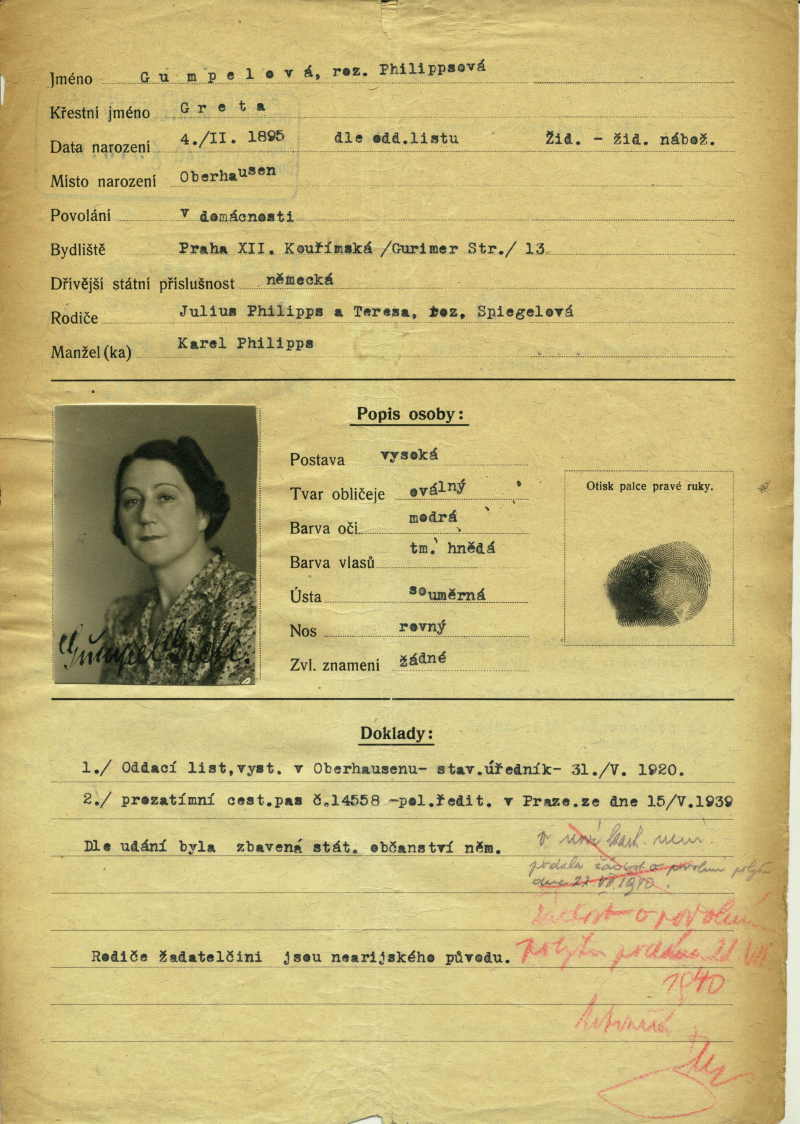 Jméno Gumpelová, roz. Philippsová
Křestní jméno Greta
Data narození 4./II. 1895 dle odd.listu Žid. - žid. nábož.
Místo narození Oberhausen
Povolání v domácnosti
Bydliště Praha XII. Kouřímská /Gurimer Str./ 13
Dřívější státní příslušnost německá
Rodiče Julius Philipps a Teresa, roz, Spiegelová
Manžel(ka) Karel Philipps
Popis osoby:
Postava vysoká
Tvar obličeje oválný
Barva oči modrá
Barva vlasů tm. hnědá
Ústa souměrná
Nos rovný
Zvl. znamení žádné
Otisk palce pravé ruky.
Gumpel Grete.
Doklady:
1./ Oddací list,vyst. v Oberhausenu- stav.úředník- 31./V. 1920.
2./ prozatímní cest.pas č.14558 -pol.ředit. v Praze.ze dne 15/V.1939
Dle udání byla zbavená stát. občanství něm.
podala žádost o povolení pobytu
dne 21 VII 1940.
žádost o povolení
Rodiče žadatelčini jsou nearijského původu.
pobytu podána 21 VII
1940